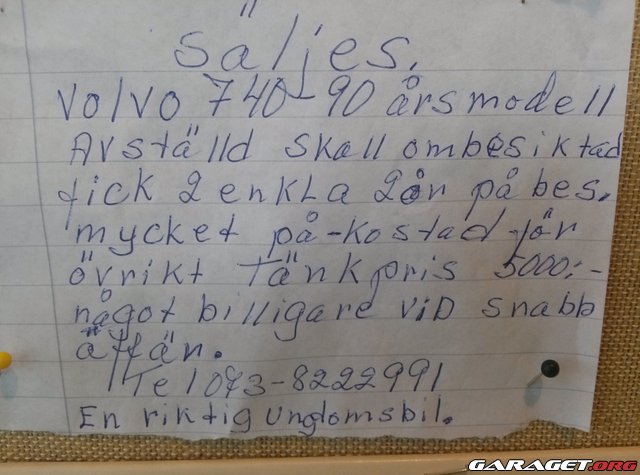 Säljes.
Volvo 740-90 årsmodell
Avställd skall ombesiktad
fick 2 enkla 2år på bes.
mycket på-kostad för
övrikt Tänkpris 5000:-
något billigare viD snabb
äffän.
Tel 073-8222991
En riktig Unglomsbil.
GARAGET.ORG